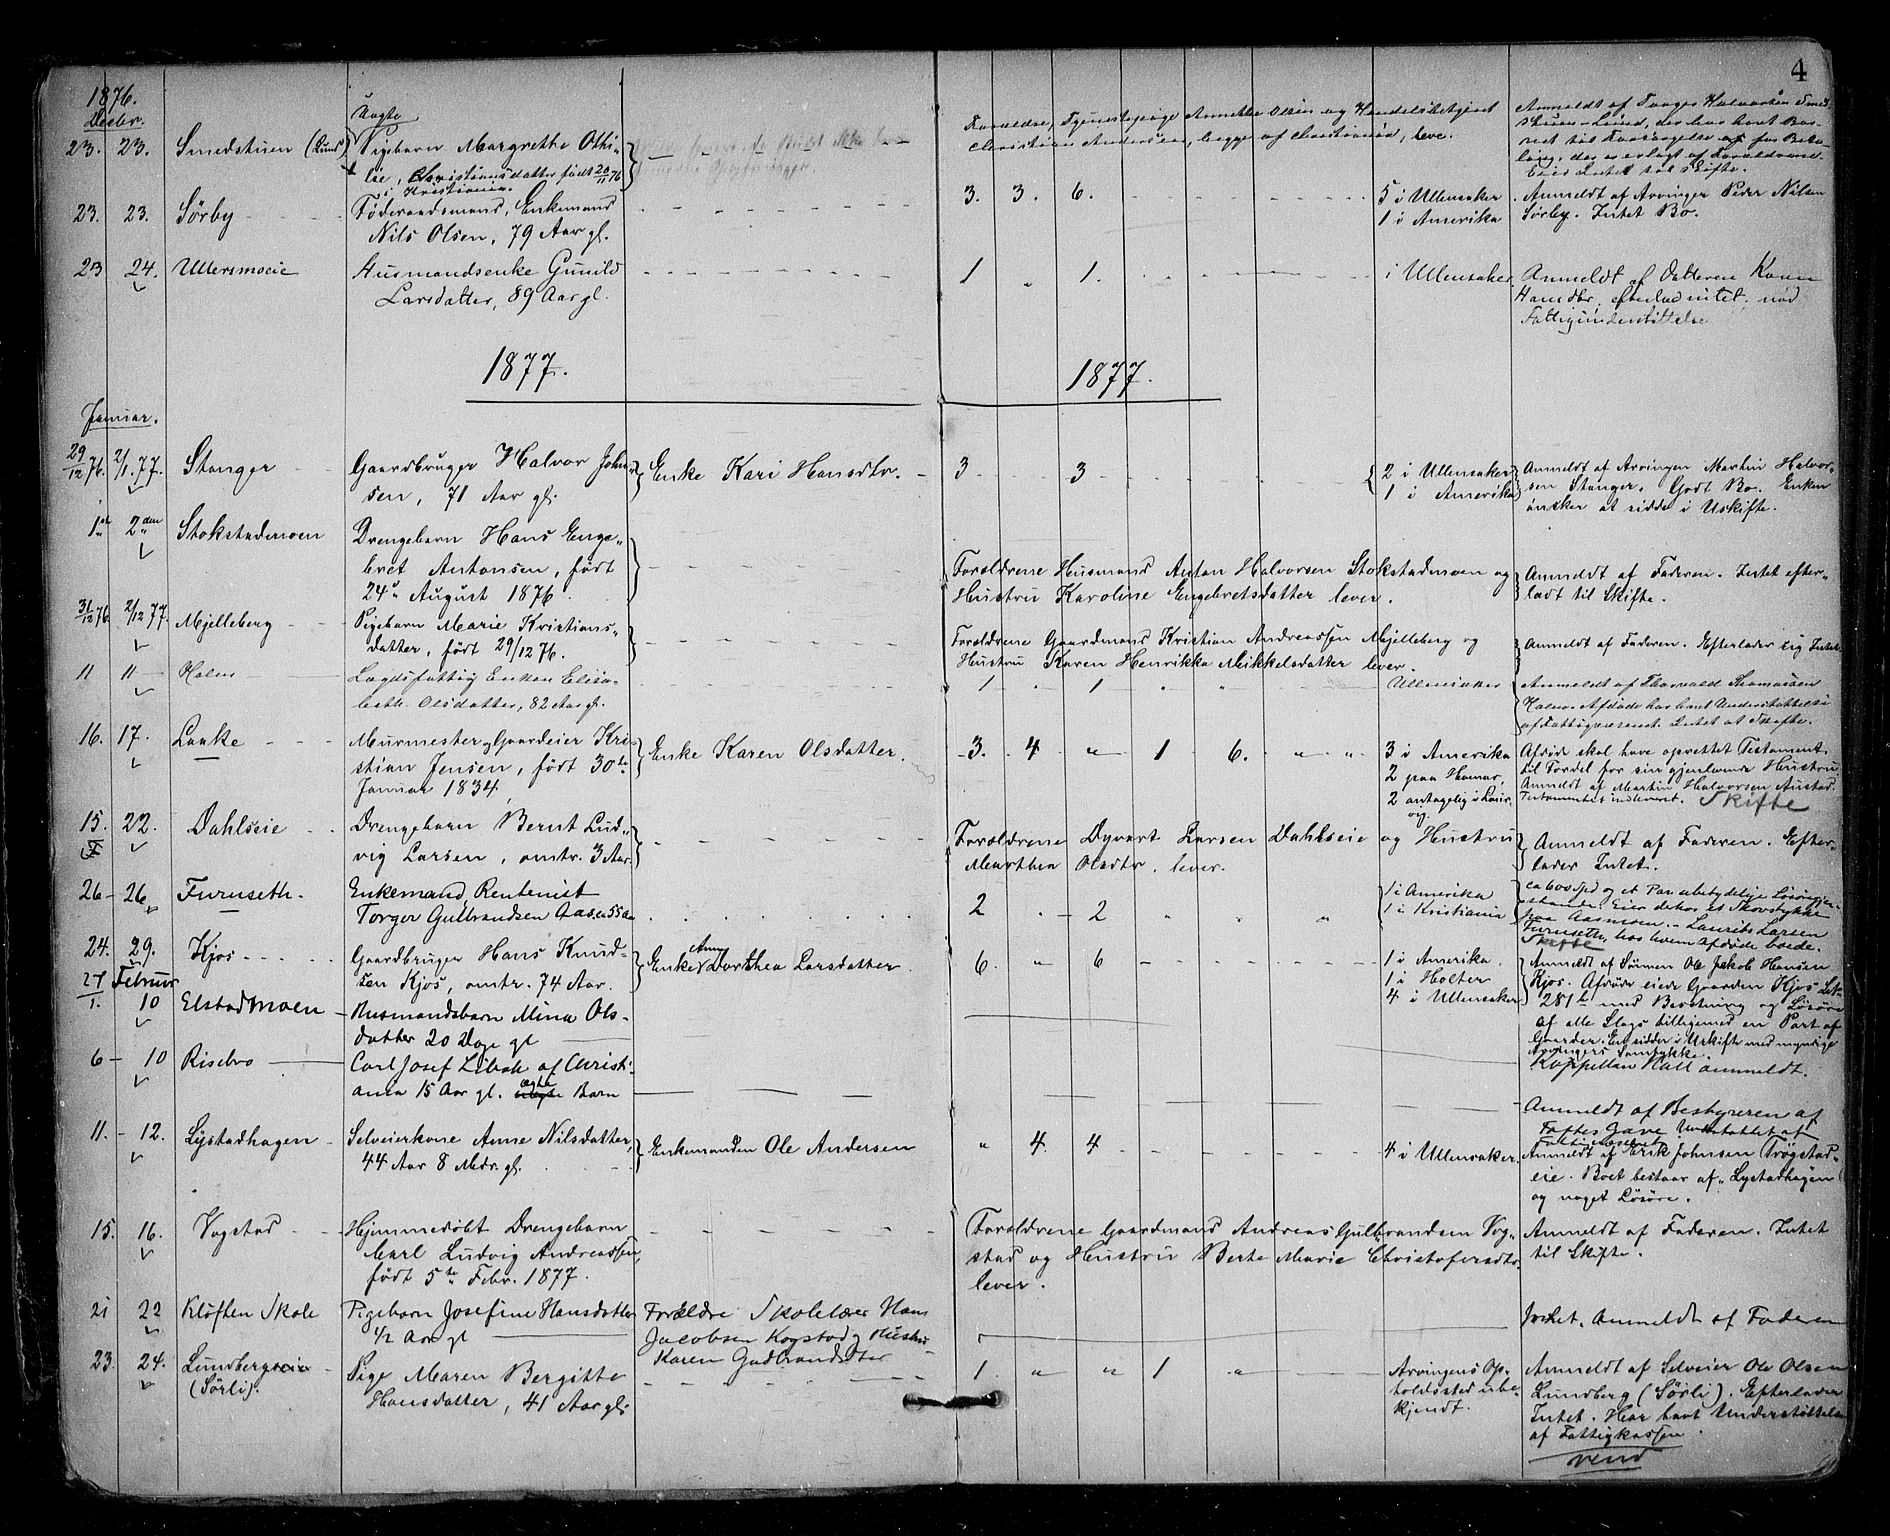 4
1876.
Decbr.
23. 23. Smedstuen (Lund)
Uægte
Pigebarn Margrethe Othi-
lie, Christiansdatter født 20/11 76
i Kristiania.
Forældre, Tjenestepige Annette Olsen og Handelsbetjent
Christian Andersen, begge af Christiania, leve.
Anmeldt af Torger Halvorsen Smed-
stuen Lund, der har havt Bar-
net til Forsørgelse for Beta-
ling, der er erlagt af Forældrene.
Eier Intet til Skifte.
23. 23. Sørby
Føderaadsmand, Enkemand
Nils Olsen, 79 Aar gl.
3. 3. 6.
5 i Ullensaker
1 i Amerika
Anmeldt af Arvinger Peder Nilsen
Sørby. Intet Bo.
23 24. Ullersmoeie
Husmandsenke Gunild
Larsdatter, 89 Aar gl.
1 " 1.
i Ullensaker
Anmeldt af Datteren Karen
Hansdtr, efterlod intet, nød
Fattigunderstøttelse
1877. 1877.
Januar.
29/12 76. 2/1. 77. Stanger
Gaardbruger Halvor John-
sen, 71 Aar gl.
Enke Kari Hansdtr.
3 3
2 i Ullensaker
1 i Amerika
Anmeldt af Arvingen Martin Halvor-
sen Stanger. Godt Bo. Enken
ønsker at sidde i Uskifte.
1ste 2den Stokstadmoen
Drengebarn Hans Enge-
bret Antonsen, født
24de August 1876.
Forældrene Husmand Anton Halvorsen Stokstadmoen og
Hustru Karoline Engebretsdatter lever.
Anmeldt af Faderen. Intet efter-
ladt til Skifte.
31/12 76. 2/12 77. Mjelleberg
Pigebarn Marie Kristians-
datter, født 29/12 76.
Forældrene Gaardmand Kristian Andreassen Mjelleberg og
Hustru Karen Henrikka Mikkelsdatter lever.
Anmeldt af Faderen. Efterlader sig Intet
11 11 Holm
Lægdsfattig Enken Elisa-
beth Olsdatter, 82 Aar gl.
1 " 1 " "
Ullensaker
Anmeldt af Thorvald Thomassen
Holm. Afdøde har havt Understøttelse
af Fattigvæsenet. Intet at Skifte.
16. 17. Laake
Murmester og Gaardeier Kri-
stian Jensen, født 30te
Januar 1834
Enke Karen Olsdatter.
3. 4 " 1 6. " "
3 i Amerika
2 paa Hamar,
2 antagelig i
Afdøde skal have oprettet Testament
til Fordel for sin gjenlevende Hustru
Anmeldt af Martin Halvorsen Austad.
Testamentet indleveret. Skifte
15. 22. Dahlseie
I
Drengebarn Bernt Lud-
vig Larsen, omtr. 3 Aar.
Forældrene Dyvart Larsen Dahlseie og Hustru
Marthea Olsdtr. lever.
Anmeldt af Faderen. Efter-
lader Intet.
26 - 26 Furuseth.
Enkemand, Rentenist
Torger Gulbrandsen Aas, ca 55 Aar
2 . 2 " " "
1 i Amerika
1 i Kristiania
ca 600 Spd og et Par ubetydelige Løsøregjen-
stande. Eier dekos et Skovstykke
paa Aasmoen. Laurits Larsen
Furuseth, hos hvem afdøde boede.
Skifte
24. 29. Kjos
Gaardbruger Hans Knud-
sen Kjos, omtr. 74 Aar.
Enke Anne Dorthea Larsdatter.
6. " 6
1 i Amerika.
1 i Holter
4 i Ullensaker
Anmeldt af Sønnen Ole Jakob Hansen
Kjos. Afdøde eiede Gaarden Kjos
281 med Besetning og Løsøre
af alle Slags tilligemed en Part af
Gaarder. En sidder i Uskifte med myndige
Arvingers Samtykke.
Februar
27/1. 10 Elstadmoen
Husmandsbarn Mina Ols-
datter 20 Dage gl
Kappellan Hall anmeldt.
6 - 10 Risebro
Carl Josef Liback af Christi-
ania 15 Aar gl. ægte Barn
Anmeldt af Bestyreren af
Toftes Gave. Understøttet af
Fattigvæsenet.
11. - 12. Lystadhagen
Selveierkone Anne Nilsdatter,
44 Aar 8 Mdr. gl.
Enkemanden Ole Andersen
" 4 4
4 i Ullensaker.
Anmeldt af Erik Johnsen Trøgstad-
eie. Boet bestaar af Lystadhagen
og noget Løsøre.
15. 16. Vogstad
Hjemmedøbt Drengebarn
Carl Ludvig Andreassen,
født 5te Febr. 1877.
Forældrene Gaardmand Andreas Gulbrandsen Vog-
stad og Hustru Berte Marie Christofersdtr.
lever.
Anmeldt af Faderen. Intet
til Skifte.
21 22 Kløften Skole
Pigebarn Josefine Hansdatter
1/2 Aar gl
Forældre Skolelærer Hans
Jacobsen Kogstad og Hustru
Karen Gudbrandsdtr
Intet. Anmeldt af Faderen
23. 24. Lundbergseie
(Sørli).
Pige Maren Bergitte
Hansdatter, 41 Aar gl.
1. " " 1 "
Arvingens Op-
holdssted ube-
kjendt.
Anmeldt af Selveier Ole Olsen
Lundberg (Sørli). Efterlader
Intet. Har havt Understøttelse
af Fattigkassen.
vend